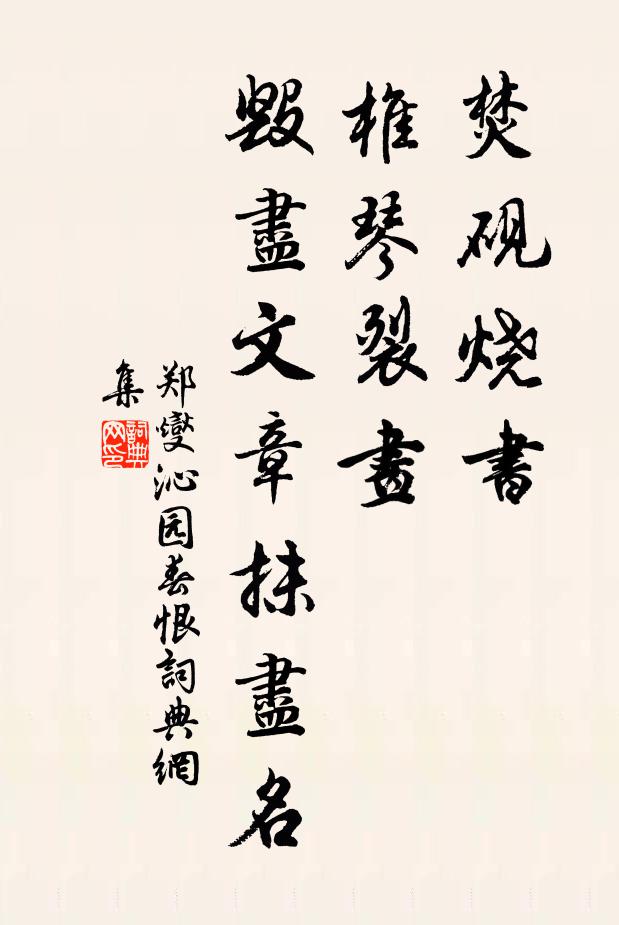 焚砚烧书
椎琴裂畫
毁盡文章抹盡名
郑燮沁园春恨詞典網
集
詞典
网印